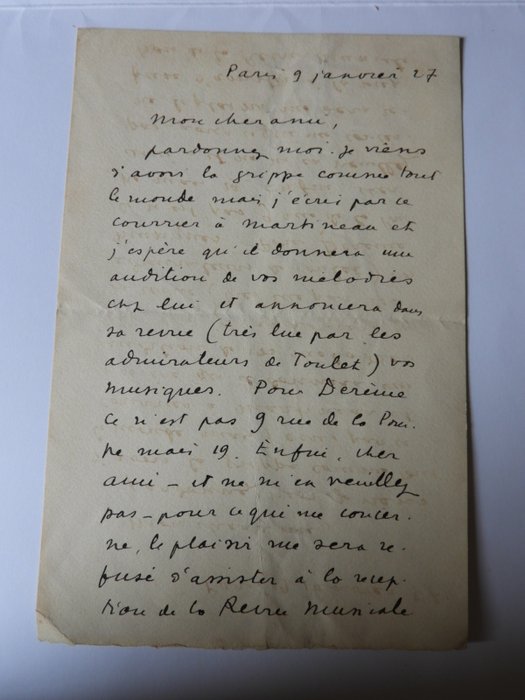 Paris 9 janvier 27
Mon cher ami,
pardonnez moi. je viens
d'avoir la grippe comme tout
le monde mais j'écris par ce
courrier à Martineau et
j'espère qu'il donnera une
audition de vos mélodies
chez lui et annoncera dans
sa revue (très lue par les
admirateurs de Toulet) vos
musiques. Pour Derème
ce n'est pas 9 rue de la Pom-
pe mais 19. Enfin, cher
ami – et ne m'en veuillez
pas – pour ce qui me concer-
ne, le plaisir me sera re-
fusé d'assister à la récep-
tion de la Revue Musicale